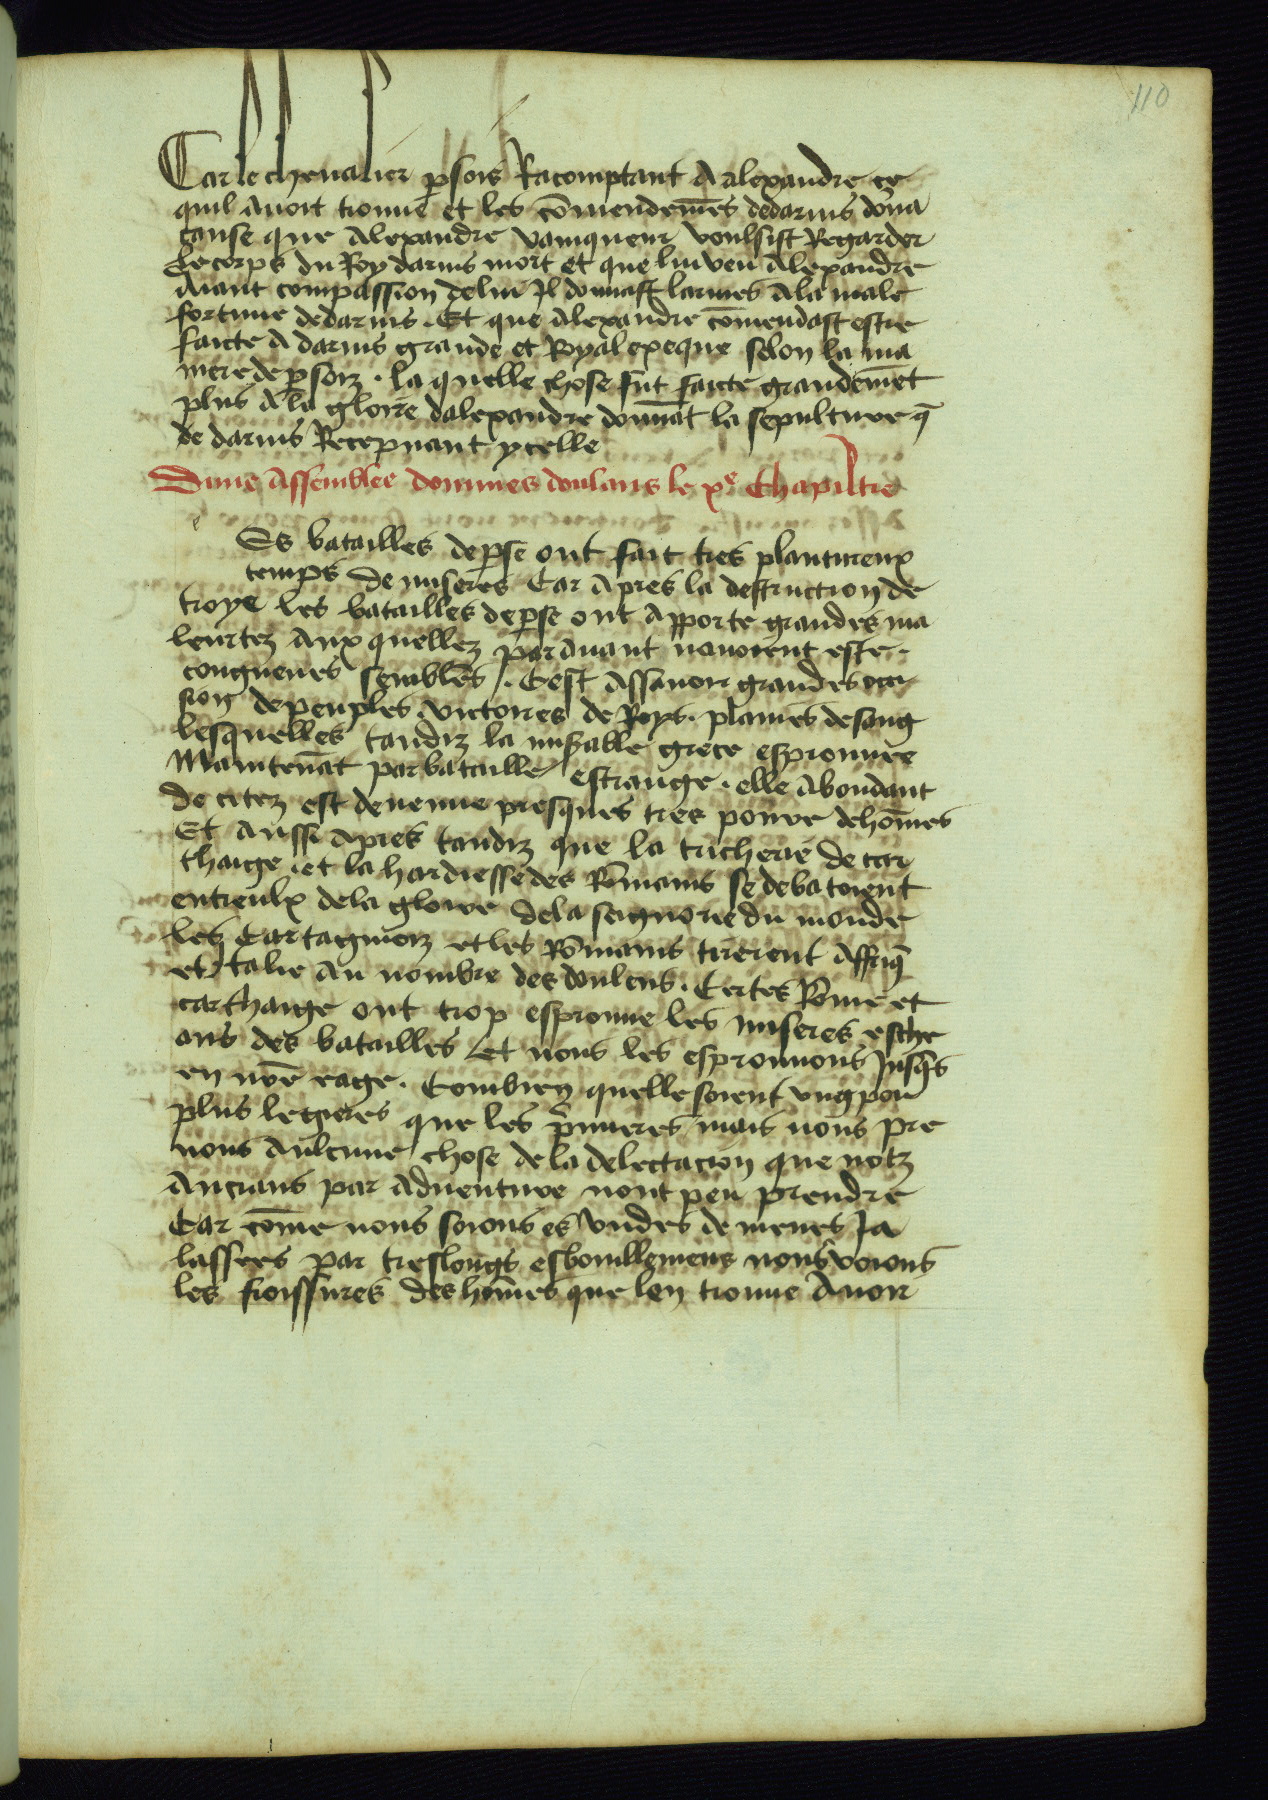 110
Car le chevalier ꝑsois Racomptant A alexandre ce
quil Avoit trouve et les cōmendemēs de darius dōna
cause que Alexandre vainqueur voulsist Regarder
Le corps du Roy darius mort et que lui veu Alexandre
Aiant compassion de lui Il donnast larmes A la male
fortune de darius . Et que Alexandre cōmendast estre
faicte A darius grande et Royal exeque selon la ma
niere de ꝑsoiz . la quelle chose fut faicte grandemēt
plus A la gloire dalexandre donnāt la sepulture q̄
de darius Recepvant ycelle
Dune Assemblee dommes doulans le xe Chapiltre
e
Es batailles de ꝑse ont fait tres plantureux
temps de miseres Car Apres la destruction de
troye les batailles de ꝑse ont Apporte grandes ma
leurtez Aux quellez par Avant navoient este
congneues semblēs . Cest Assavoir grandes occi
sion de peuples victoires de Roys . plaines de sang
lesquelles tandiz la misꝑable grece esprouvee
Maintenāt par bataille estrange . elle Abondant
de citez est devenue presques tres povre de hōmes
Et Aussi Apres tandiz que la tricherie de car
thaige . et la hardiesse des Rōmains se debatoient
entreulx de la gloire de la seignorie du monde
les Cartaginoiz et les Rōmains tirerent Affriq̄
et ytalie Au nombre des doulens . Certes Rōme et
carthaige ont trop esprouve les miseres esche
ans des batailles Et nous les esprouvons Jusq̄s
en nr̄e eage . Combien quelle soient ung pou
plus legieres que les p̄mieres / mais nous pre
nons Aulcune chose de la delectacion que notz
Ancians par Adventure nont peu prendre
Car cōme nous soions es undes de menes Ja
lassees par tres longs esboullemens nous voions
les froissures des hōmes que len trouve Avoir